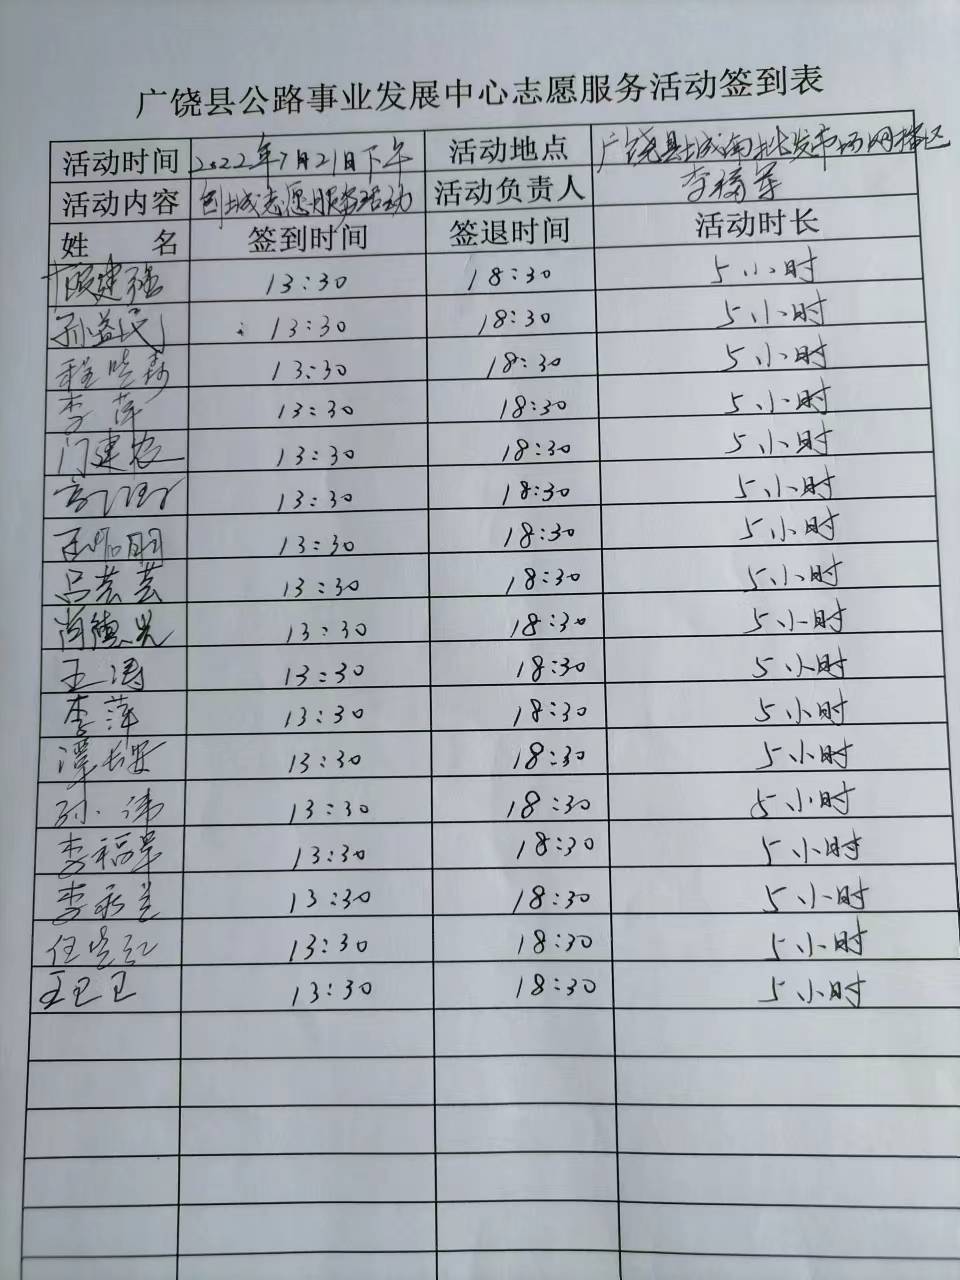 广饶县公路事业发展中心志愿服务活动签到表
活动时间 2022年7月21日下午 活动地点 广饶县城南批发市场网格区
活动内容 创城志愿服务活动 活动负责人 李福军
姓 名 签到时间 签退时间 活动时长
建强 13:30 18:30 5小时
孙益民 13:30 18:30 5小时
程晓森 13:30 18:30 5小时
李萍 13:30 18:30 5小时
门建农 13:30 18:30 5小时
13:30 18:30 5小时
13:30 18:30 5小时
吕芸芸 13:30 18:30 5小时
尚德光 13:30 18:30 5小时
王涛 13:30 18:30 5小时
李萍 13:30 18:30 5小时
谭长安 13:30 18:30 5小时
孙伟 13:30 18:30 5小时
李福军 13:30 18:30 5小时
李永兰 13:30 18:30 5小时
任晓红 13:30 18:30 5小时
王卫卫 13:30 18:30 5小时